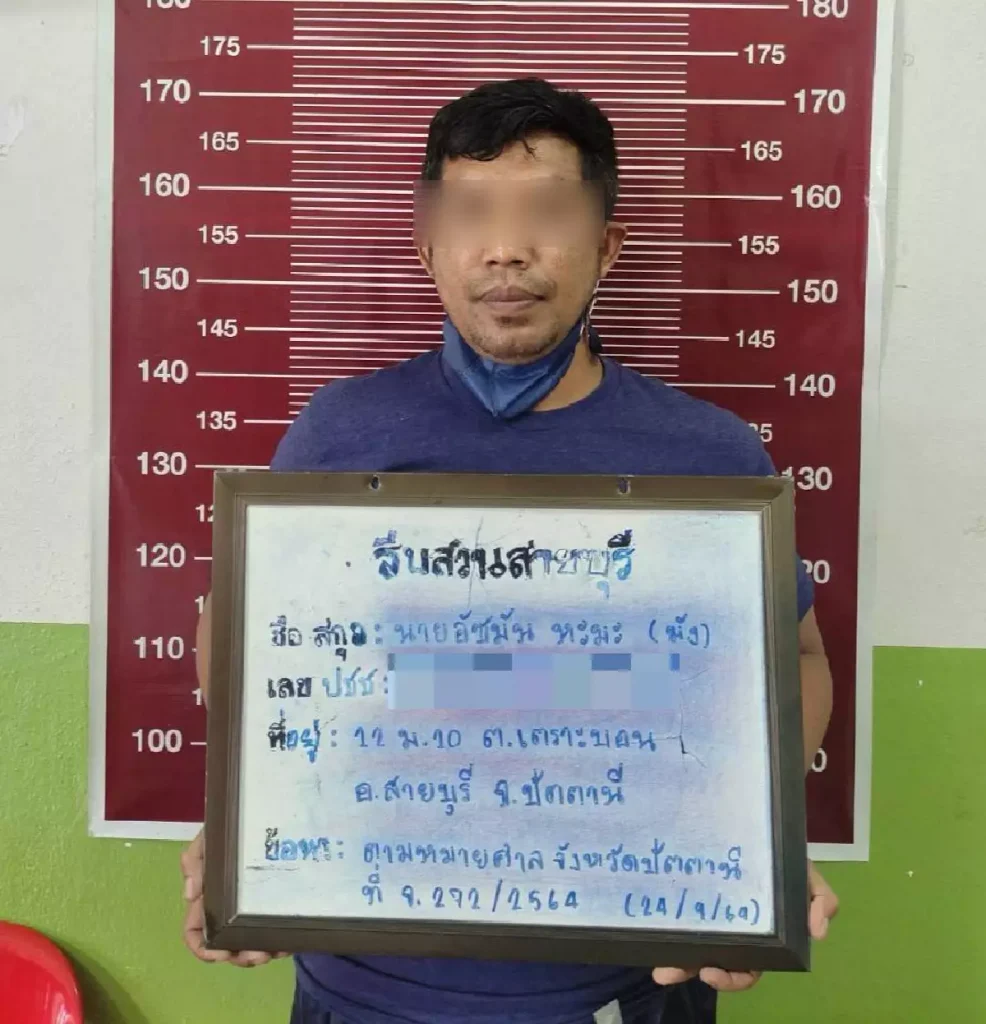 180 180
175 175
170 170
165 165
160 160
155 155
150 150
145 145
140 140
135
130 130
120
110
100
สืบสวนสายบุรี
ชื่อ สกุล : นายอัชมัน หะมะ (มัง)
เลข ปชช :
ที่อยู่ : 22 ม.10 ต.เตราะบอน
อ.สายบุรี จ.ปัตตานี
ข้อหา : ตามหมายศาล จังหวัดปัตตานี
ที่ จ.272/2564 (24/9/64)